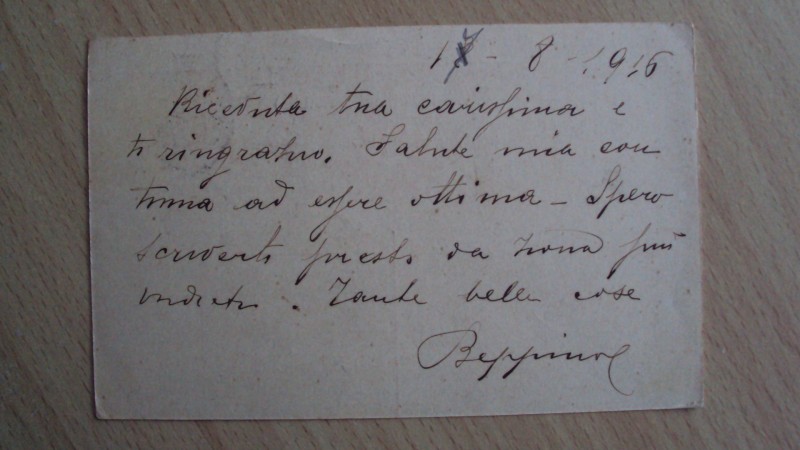 1 - 8 - 1916
Ricevuta tua carissima e
ti ringrazio. Salute mia con
tinua ad essere ottima - Spero
scriverti presto da zona più
indietro. Tante belle cose
Beppino